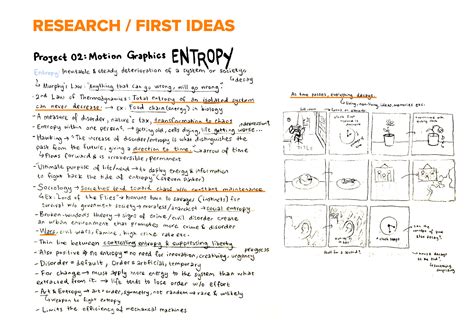 RESEARCH / FIRST IDEAS
Project 02: Motion Graphics ENTROPY
Entropy: Inevitable & steady deterioration of a system or society
decay
Murphy's Law: "Anything that can go wrong, will go wrong"
2nd Law of Thermodynamics: Total entropy of an isolated system
can never decrease. ex. Food chain (energy) in biology
- A measure of disorder, nature's tax, transformation to chaos
- Entropy within one person? → getting old, cells dying, life getting worse...
- Hawking → "The increase of disorder/entropy is what distinguishes the
past from the future, giving a direction to time." → arrow of time
flows forward & is irreversible, permanent
- Ultimate purpose of life/mind → to deploy energy & information
to fight back the tide of entropy
- Sociology → Societies tend toward chaos w/o constant maintenance
Ex: Lord of the Flies → humans turn to savages (instincts) for
survival w/o government/society → moral entropy
- Broken-windows theory → signs of crime/civil disorder create
an environment that promotes more crime & disorder
- Wars, civil wars, famine, high crime rate etc.
- Thin line between controlling entropy & suppressing liberty
progress
- Also positive → no entropy = no need for innovation, creativity, urgency
- Disorder = default, Order = artificial, temporary
- For change → must apply more energy to the system than what
extracted from it. → life tends to lose order w/o effort
- Art & Entropy → art = order, symmetry, not random → rare & unlikely
weapon to fight entropy
- Limits the efficiency of mechanical machines
As time passes, everything decays.